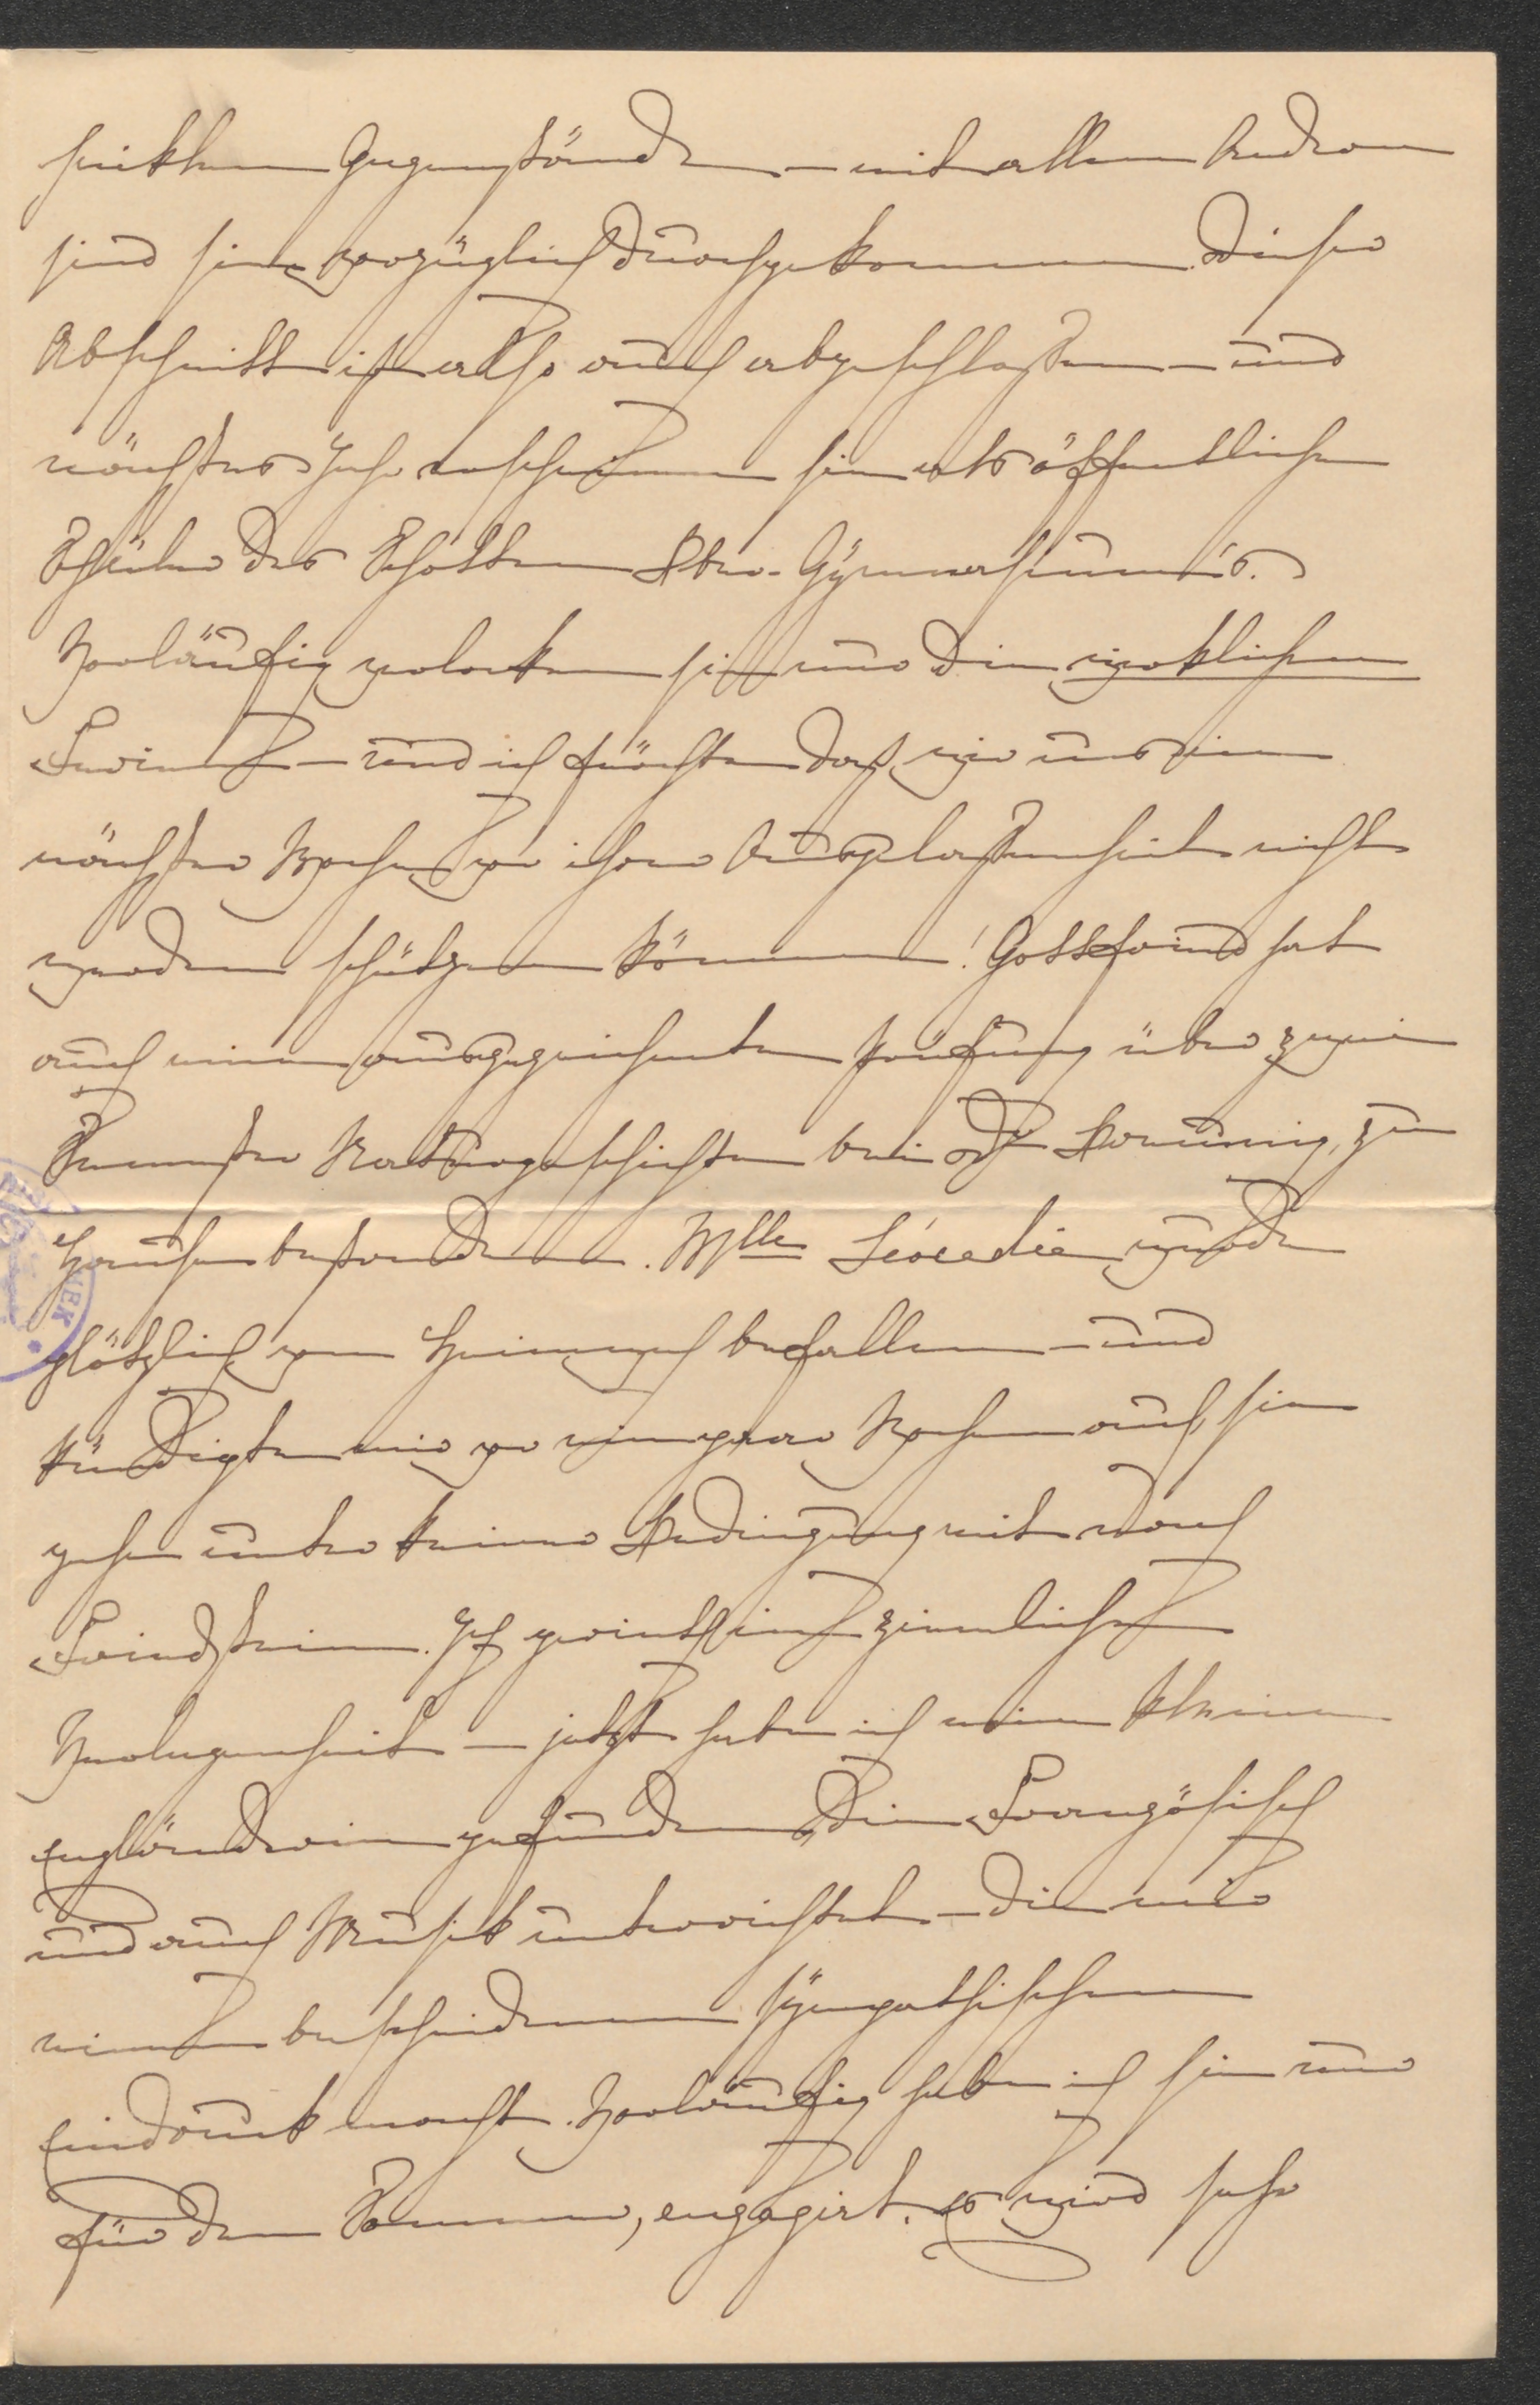 heiklen Gegenstände – mit allem Andern
sind sie vorzüglich durchgekommen. Dieser
Abschnitt ist also auch abgeschlossen – und
nächstes Jahr erscheinen sie als öffentliche
Schüler des Schotten Ober-Gymnasium's.
Vorläufig verlocken sie nur die wirklichen
Ferien – und ich fürchte daß wir uns in
nächster Woche vor ihrer Ausgelassenheit nicht
werden schützen können! Gottfried hat
auch eine ausgezeichnete Prüfung über zwei
Semester Naturgeschichte bei Dr Brauning, zu
Hause bestanden. Mlle Léocadie wurde
plötzlich von Heimweh befallen – und
kündigte mir vor ein paar Wochen auf, sie
gehe unter keiner Bedingung mit nach
Friedstein. Ich gerieth in ziemliche
Verlegenheit – jetzt habe ich eine kleine
Engländerin gefunden die Französisch
und auch Musik unterrichtet – die mir
einen bescheidenen sympathischen
Eindruck macht. Vorläufig habe ich sie nur
für den Sommer, engagirt. Es wird sehr